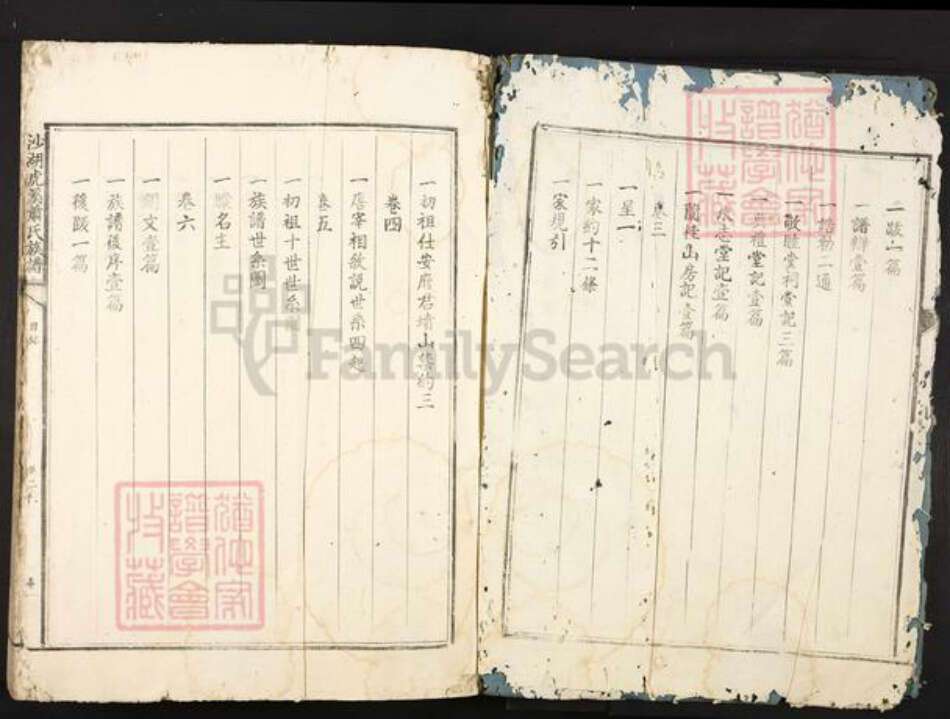 一跋一篇
一譜辨壹篇
一誥勅二通
一敬睦堂祠堂記三篇
一典禮堂記壹篇
一永志堂記壹篇
一蘭徒山房記壹篇
卷三
一呈一
一家約十二條
一家規引
一初祖仕安府君墳山禁約三
卷四
一唐宰相敘說世系四起
卷五
一初祖十世世系
一族譜世系圖
名主
卷六
文壹篇
一族譜後序壹篇
一後跋一篇
沙湖虎蕭氏族譜
FamilySearch
譜學會
收藏